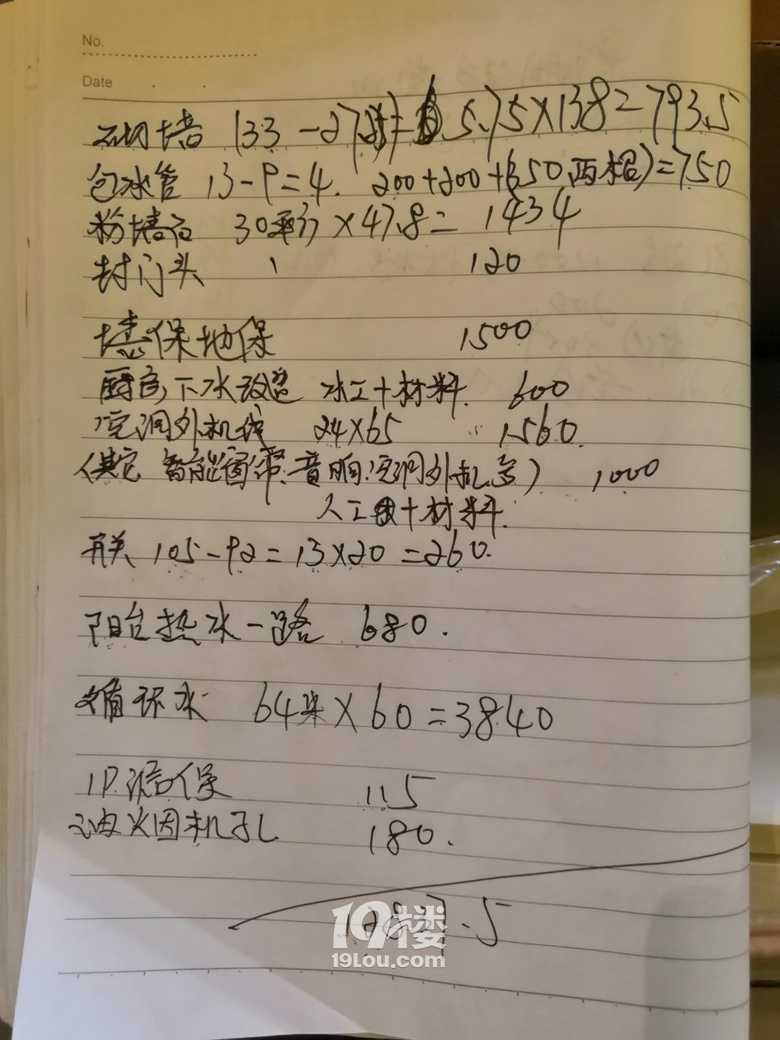 No.
Date
砌墙 (33-27.25)=5.75×138=793.5
包水管 13-9=4. 200+200+(350两根)=750
粉墙石 30平方×47.8=1434
封门头 1 120
墙保地保 1500
厨房下水改造 水工+材料. 600
空调外机线 24×65 1560.
(其它 智能窗帘、音响、空调外机等) 1000
人工+材料.
开关 105-92=13×20=260.
阳台热水一路 680.
循环水 64米×60=3840
115
油烟机孔 180.
.5
19楼
19lou.com